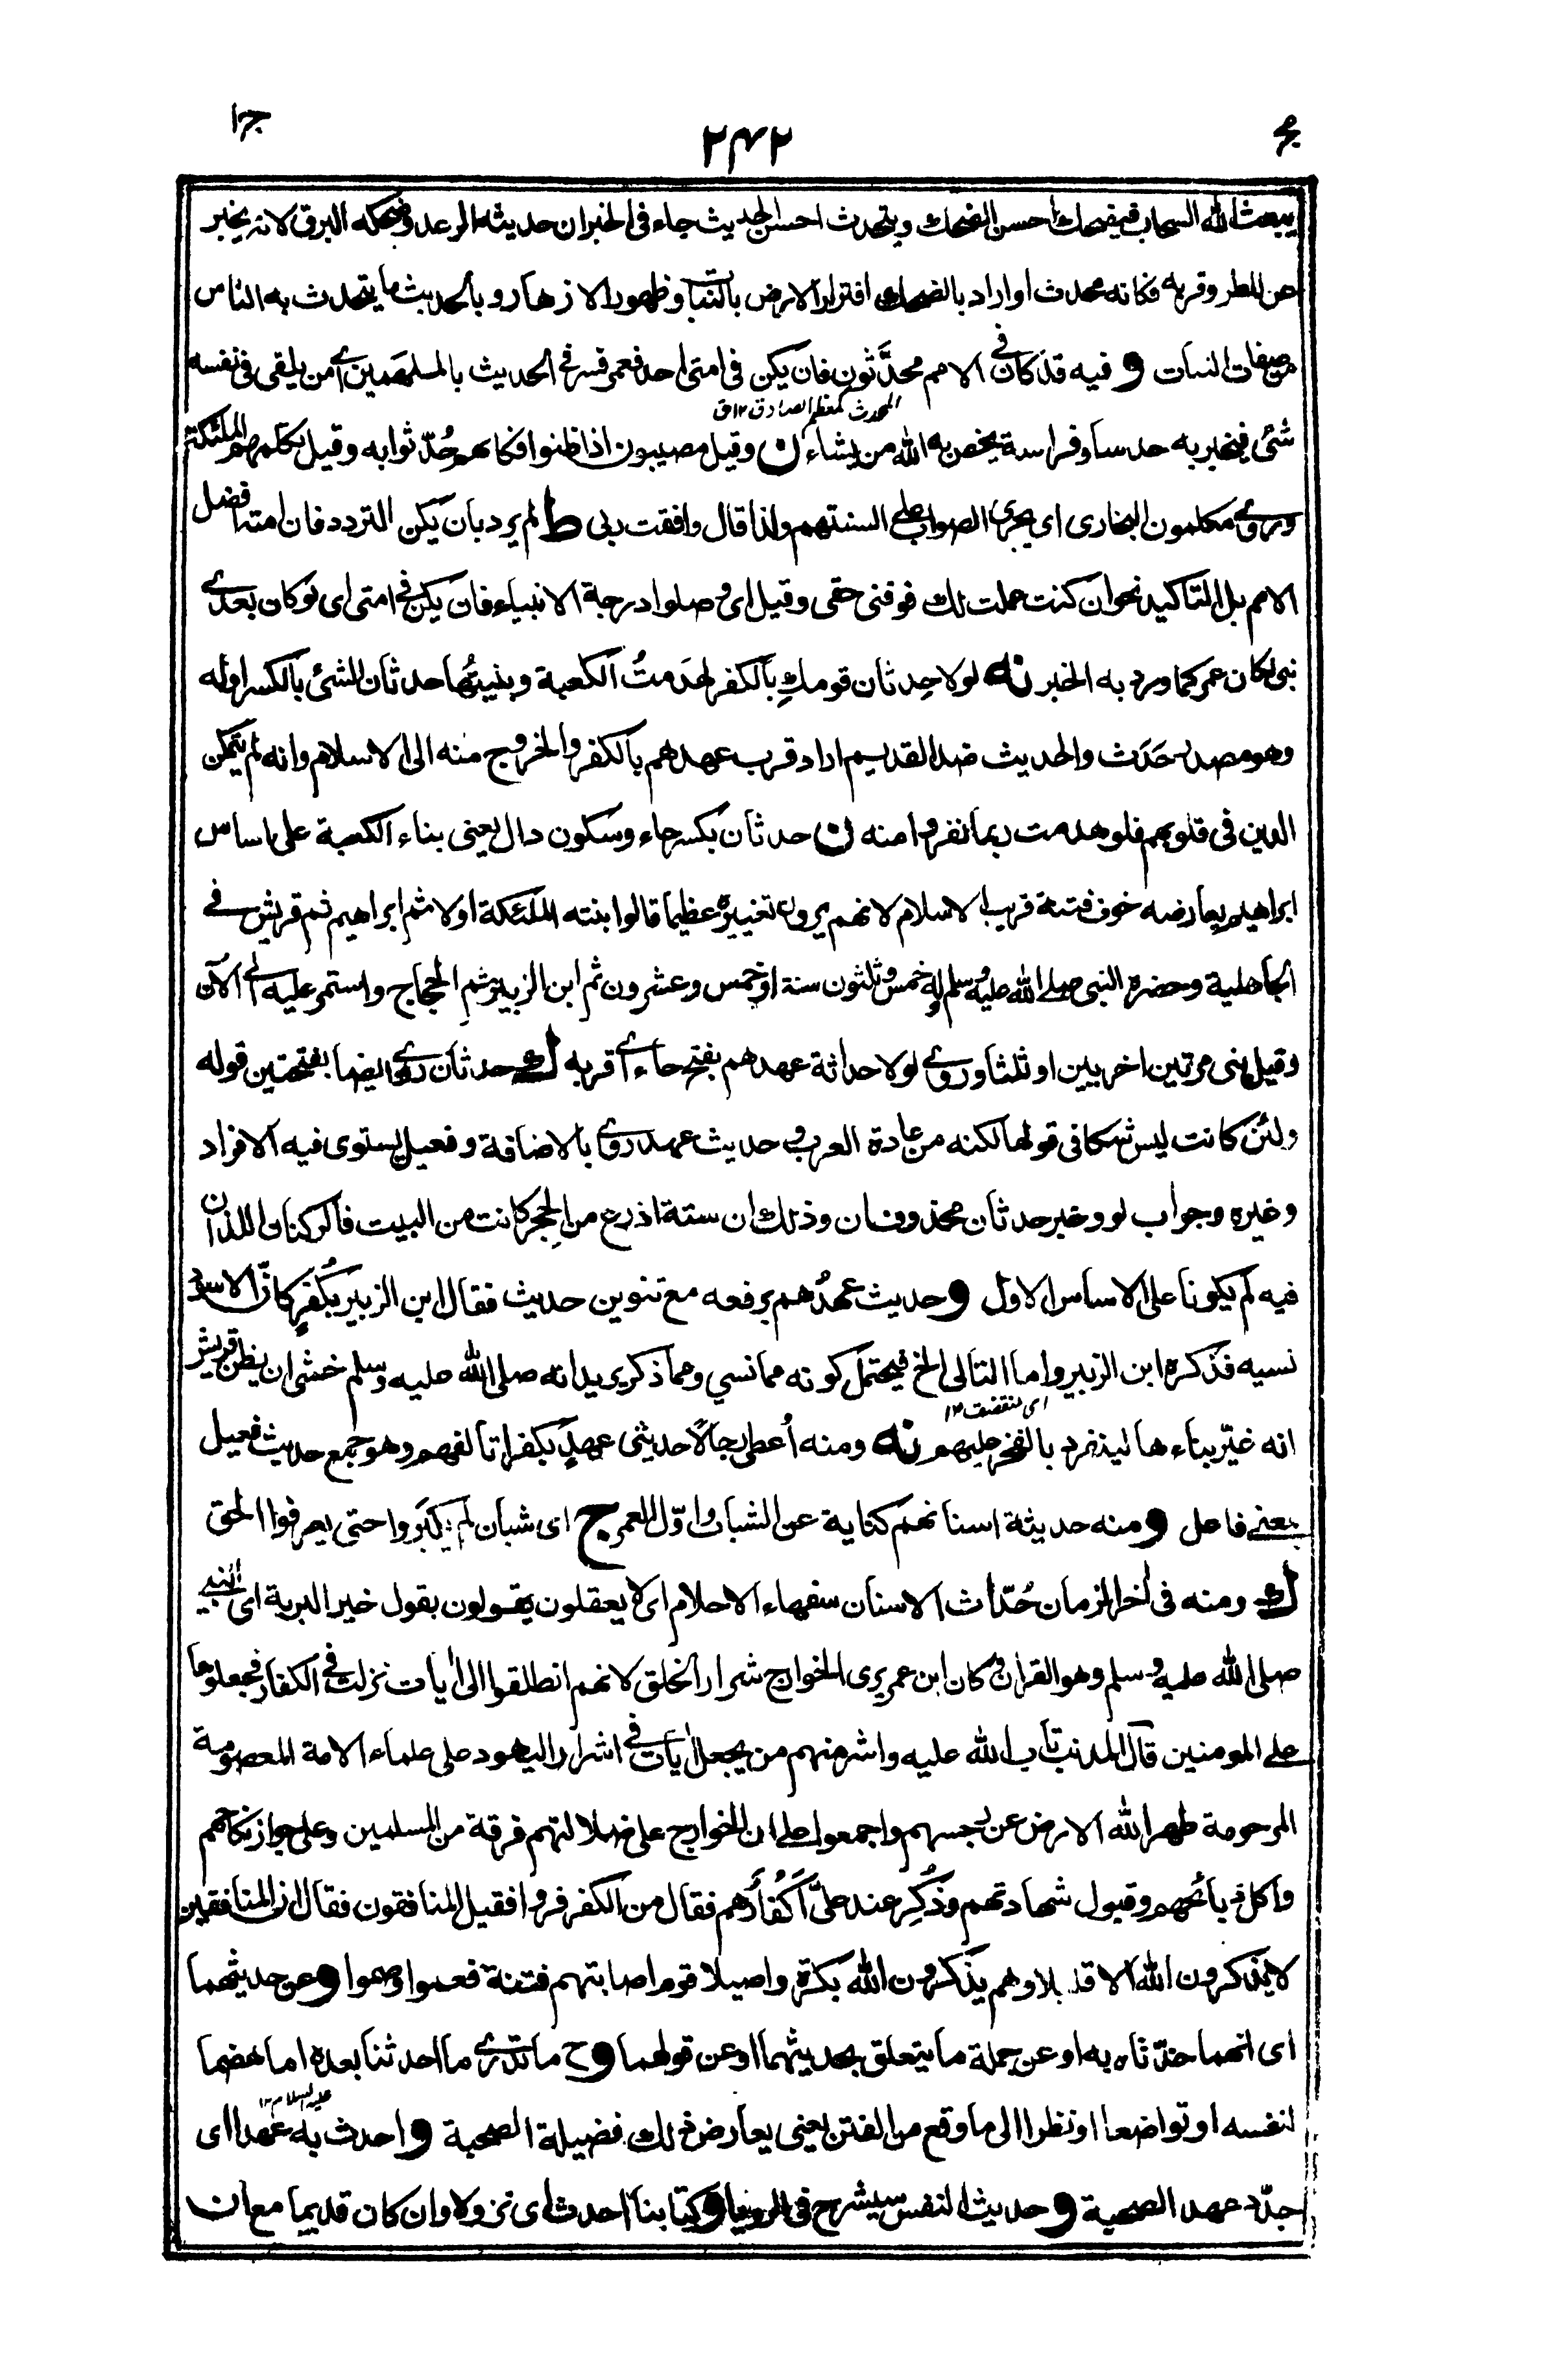 جا
٢٤٢
يبعث الله السحاب فيضحك احسن الضحك ويتحدث احسن الحديث جاء فى الخبر ان حديثه الرعد وضحكه البرق لانه يخبر
عن المطر وقربه فكانه محدث او اراد بالضحك افترار الارض بالنبات وظهور الازهار وبالحديث ما يتحدث به الناس
من صفات النبات و فيه قد كان فى الامم محدَّثون فان يكن فى امتى احد فعمر فسر فى الحديث بالملهمين اى من يلقى فى نفسه
المحدث كمعظم الصادق ١٢ق
شئ فيخبر به حدسا وفراسة يخص به الله من يشاء ن وقيل مصيبون اذا ظنوا فكانهم حُدّثوا به وقيل تكلمهم الملئكة
وروى مكلمون البخارى اى يجرى الصواب على السنتهم ولذا قال وافقت ربى ط لم يرد بان يكن التردد فان امته افضل
الامم بل التاكيد نحو ان كنت عملت لك فوفنى حقى وقيل اى وصلوا درجة الانبياء فان يكن فى امتى اى لو كان بعدى
نبى لكان عمر كما ورد به الخبر نه لولا حِدثان قومكِ بالكفر لهدمتُ الكعبة وبنيتُها حدثان الشئ بالكسر اوله
وهو مصدر حَدَث والحديث ضد القديم اراد قرب عهدهم بالكفر والخروج منه الى الاسلام وانه لم يتمكن
الدين فى قلوبهم فلو هدمت ربما نفروا منه ن حدثان بكسر حاء وسكون دال يعنى بناء الكعبة على اساس
ابراهيم يعارضه خوف فتنة قريب الاسلام لانهم يرون تغييره عظيما قالوا بنته الملئكة اولا ثم ابراهيم ثم قريش فى
الجاهلية وحضره النبى صلى الله عليه وسلم وله خمس وثلثون سنة او خمس وعشرون ثم ابن الزبير ثم الحجاج واستمر عليه الى الآن
وقيل بنى مرتين اخريين او ثلثا وروى لولا حداثة عهدهم بفتح حاء اى قربه ك حدثان روى ايضا بفتحتين قوله
ولئن كانت ليس شكا فى قولها لكنه من عادة العرب و حديث عهد روى بالاضافة وفعيل يستوى فيه الافراد
وغيره وجواب لو وخبر حدثان محذوفان وذلك ان ستة اذرع من الحِجر كانت من البيت فالركنان اللذان
فيه لم يكونا على الاساس الاول و حديث عهدُهم برفعه مع تنوين حديث فقال ابن الزبير بكُفرٍ كانّ الاسود
نسيه فذكره ابن الزبير واما التالى الخ فيحتمل كونه مما نسي ومما ذكر يريد انه صلى الله عليه وسلم خشى ان يظن قريش
انه غيّر بناءها لينفرد بالفخر عليهم نه ومنه اُعطى رجالًا حديثى عهدٍ بكفر اتالفهم وهو جمع حديث فعيل
بمعنى فاعل و منه حديثة اسنانهم كناية عن الشباب واوّل العمر ج اى شبان لم يكبَروا حتى يعرفوا الحق
ك ومنه فى آخر الزمان حُدّاث الاسنان سفهاء الاحلام اى لا يعقلون يقولون بقول خير البرية اى النبى
صلى الله عليه وسلم وهو القران وكان ابن عمر يرى الخوارج شرار الخلق لانهم انطلقوا الى ايات نزلت فى الكفار فجعلوها
على المومنين قال المذنب تاب الله عليه واشر منهم من يجعل ايات فى اشرار اليهود على علماء الامة المعصومة
المرحومة طهر الله الارض عن رجسهم واجمعوا على ان الخوارج على ضلالتهم فرقة من المسلمين وعلى جواز نكاحهم
واكل ذبائحهم وقبول شهادتهم وذُكِر عند علىّ اَكُفاّرُهم فقال من الكفر فروا فقيل المنافقون فقال ان المنافقين
لا يذكرون الله الا قليلا وهم يذكرون الله بكرة واصيلا قوم اصابتهم فتنة فعموا وصموا و عن حديثهما
اى انهما حدّثاه به او عن جملة ما يتعلق بحديثهما او عن قولهما و ح ما تدرى ما احدثنا بعده اما هضما
لنفسه او تواضعا او نظرا الى ما وقع من الفتن يعنى يعارض ذلك فضيلة الصحبة و احدث به عهدا اى
عليه السلام ١٢
جدّد عهد الصحبة و حديث النفس سيشرح فى الرويا و كتابنا احدث اى نزولا وان كان قديما مع ان